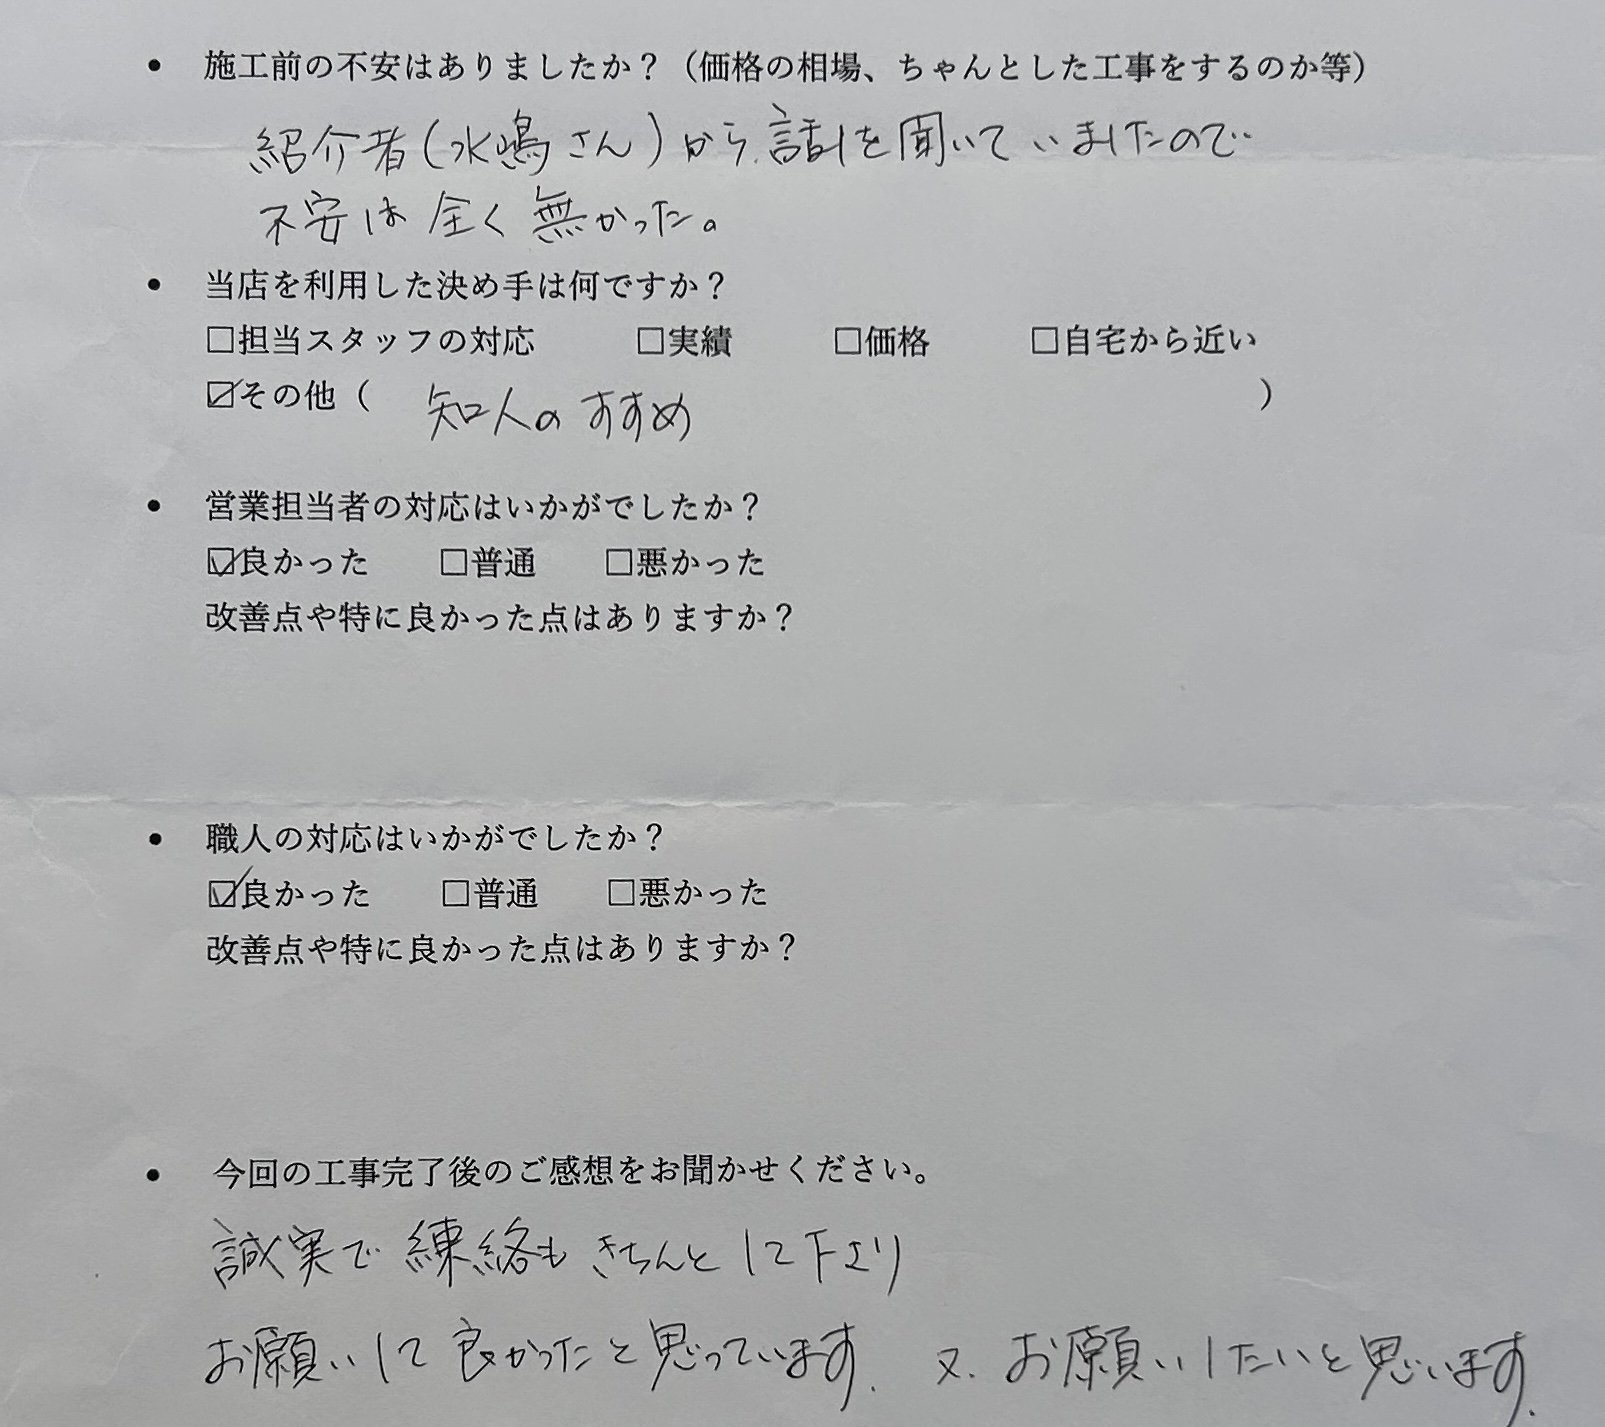 • 施工前の不安はありましたか？（価格の相場、ちゃんとした工事をするのか等）
紹介者(水嶋さん)から話しを聞いていましたので
不安は全く無かった。
• 当店を利用した決め手は何ですか？
□担当スタッフの対応 □実績 □価格 □自宅から近い
☑その他（ 知人のすすめ ）
• 営業担当者の対応はいかがでしたか？
☑良かった □普通 □悪かった
改善点や特に良かった点はありますか？
• 職人の対応はいかがでしたか？
☑良かった □普通 □悪かった
改善点や特に良かった点はありますか？
• 今回の工事完了後のご感想をお聞かせください。
誠実で練絡もきちんとして下さり
お願いして良かったと思っています. 又. お願いしたいと思います.